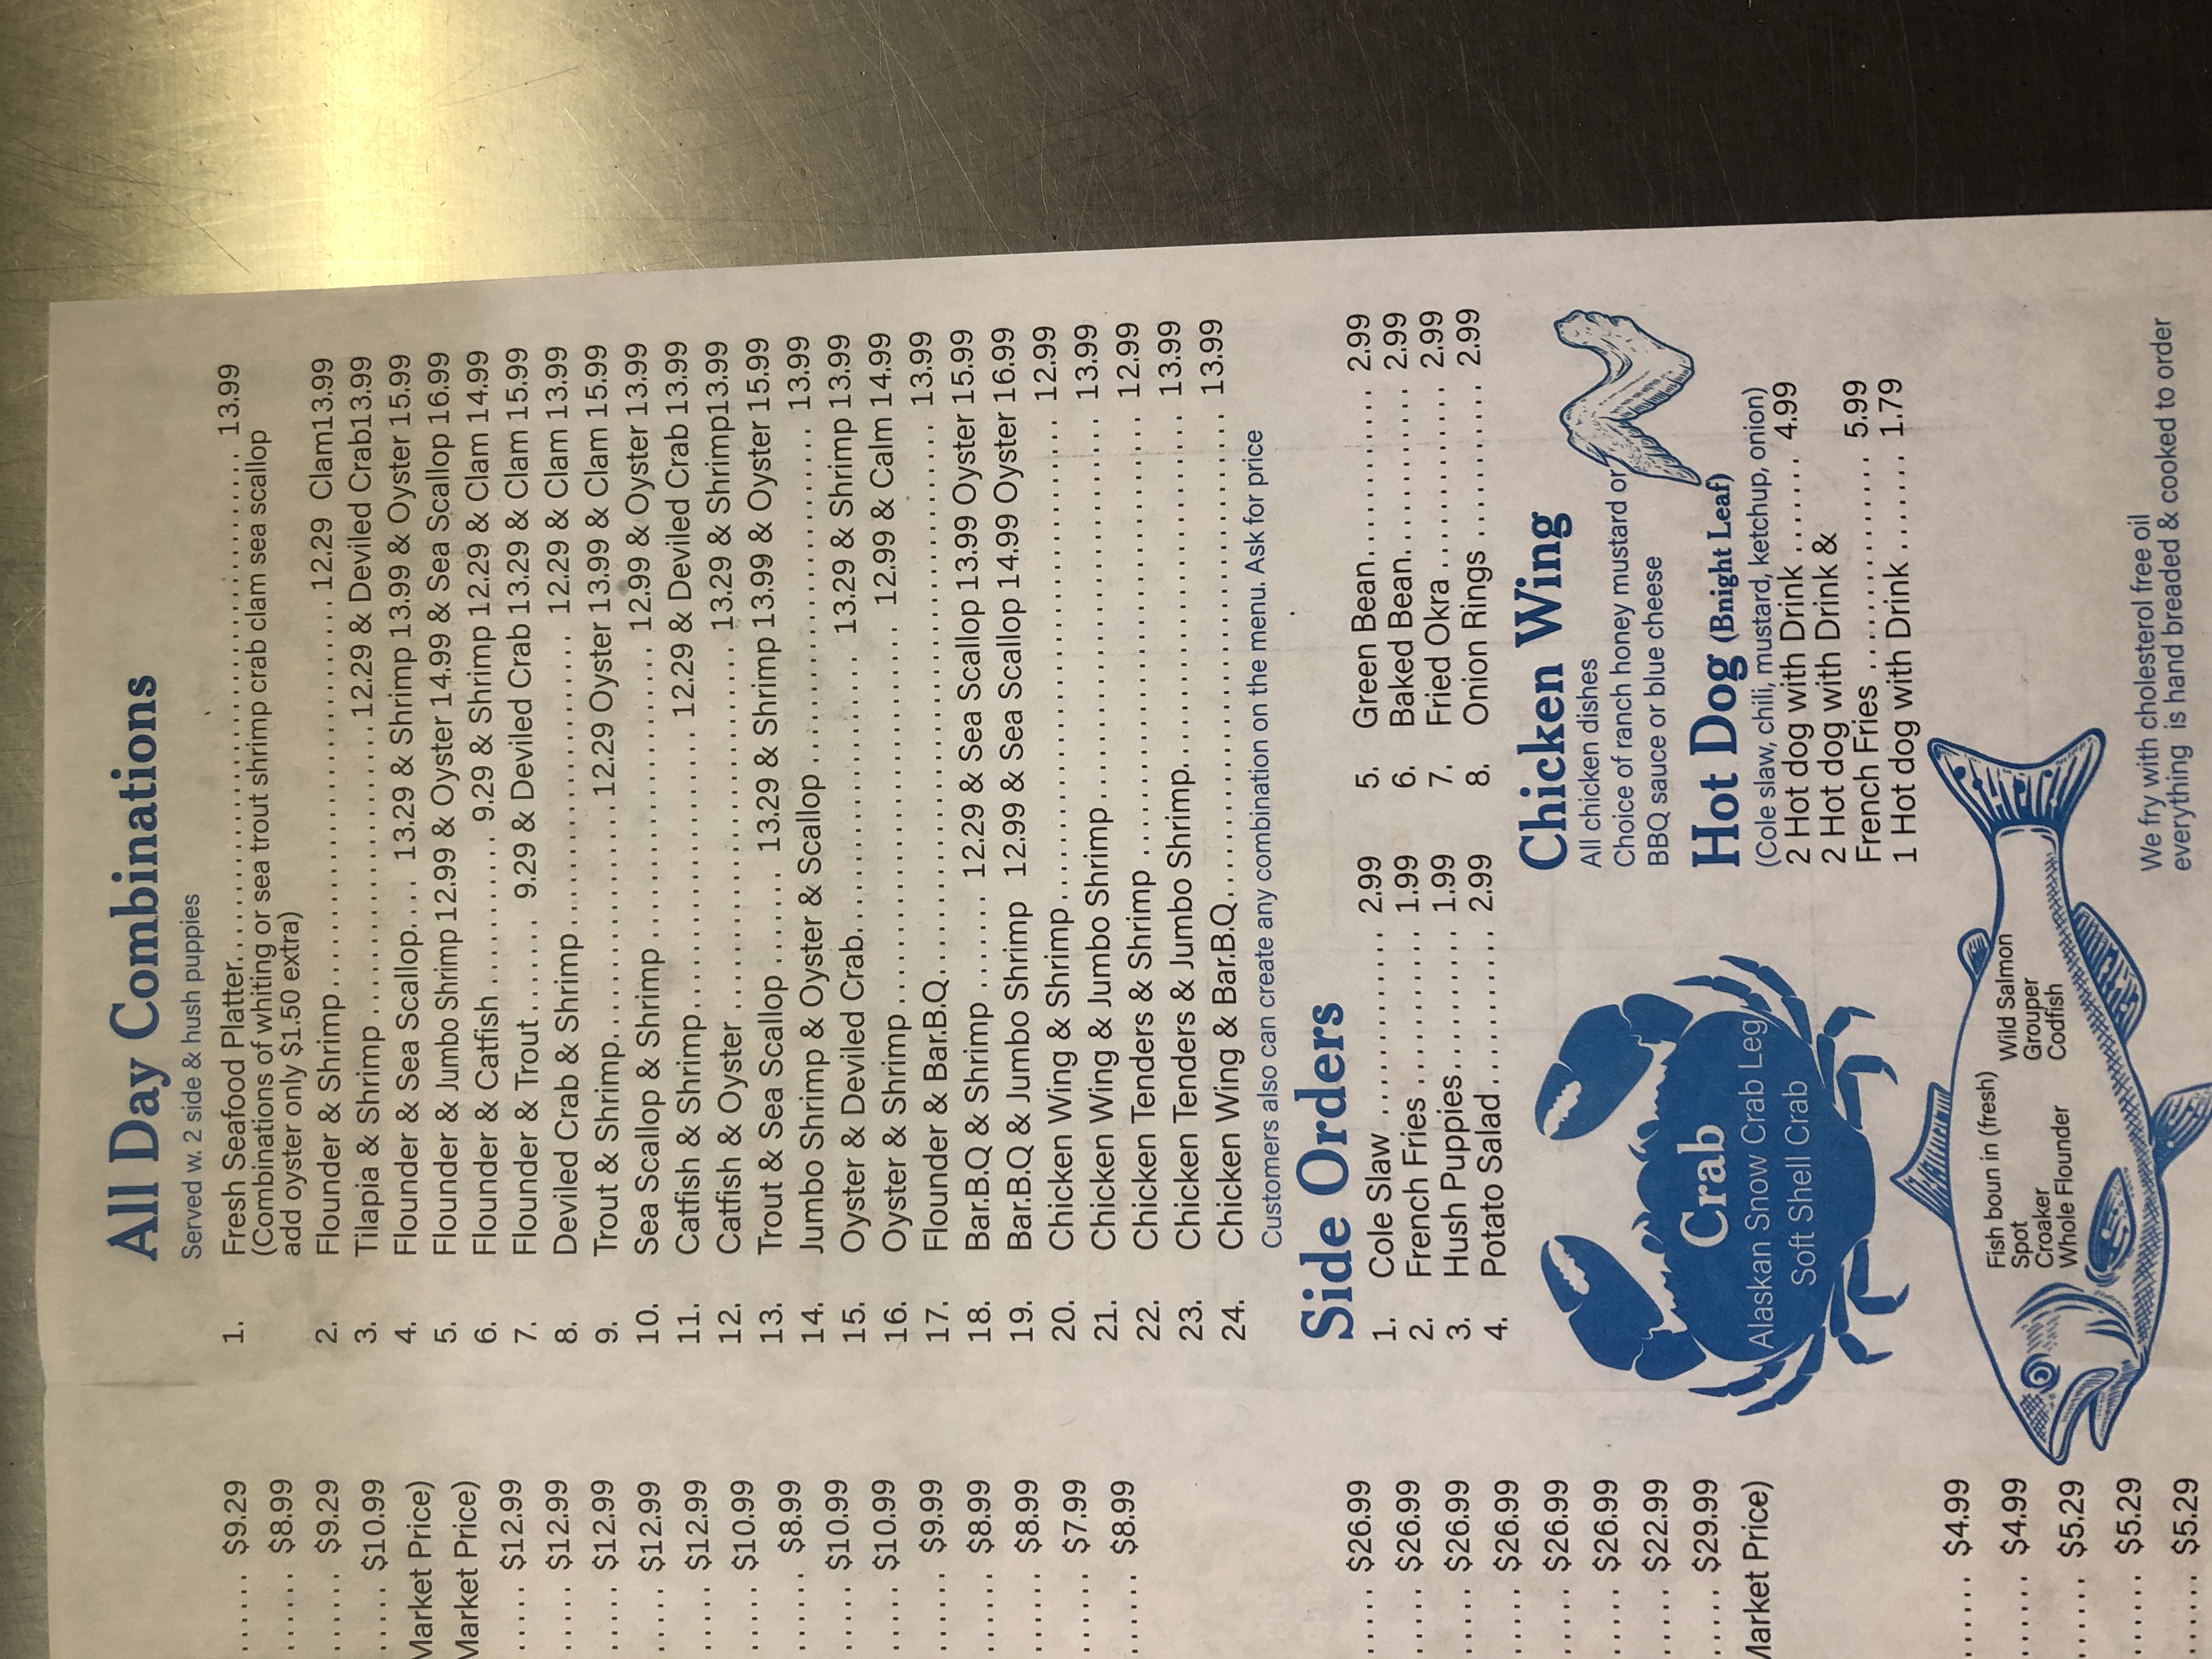 All Day Combinations
Served w. 2 side & hush puppies
1. Fresh Seafood Platter.............................. 13.99
(Combinations of whiting or sea trout shrimp crab clam sea scallop
add oyster only $1.50 extra)
2. Flounder & Shrimp.............................. 12.29 Clam13.99
3. Tilapia & Shrimp ....................12.29 & Deviled Crab13.99
4. Flounder & Sea Scallop.... 13.29 & Shrimp 13.99 & Oyster 15.99
5. Flounder & Jumbo Shrimp 12.99 & Oyster 14.99 & Sea Scallop 16.99
6. Flounder & Catfish .......... 9.29 & Shrimp 12.29 & Clam 14.99
7. Flounder & Trout....... 9.29 & Deviled Crab 13.29 & Clam 15.99
8. Deviled Crab & Shrimp........................ 12.29 & Clam 13.99
9. Trout & Shrimp..................12.29 Oyster 13.99 & Clam 15.99
10. Sea Scallop & Shrimp ...................... 12.99 & Oyster 13.99
11. Catfish & Shrimp...................... 12.29 & Deviled Crab 13.99
12. Catfish & Oyster ............................. 13.29 & Shrimp13.99
13. Trout & Sea Scallop ....... 13.29 & Shrimp 13.99 & Oyster 15.99
14. Jumbo Shrimp & Oyster & Scallop .......................... 13.99
15. Oyster & Deviled Crab..................... 13.29 & Shrimp 13.99
16. Oyster & Shrimp ............................. 12.99 & Calm 14.99
17. Flounder & Bar.B.Q......................................... 13.99
18. Bar.B.Q & Shrimp ....... 12.29 & Sea Scallop 13.99 Oyster 15.99
19. Bar.B.Q & Jumbo Shrimp 12.99 & Sea Scallop 14.99 Oyster 16.99
20. Chicken Wing & Shrimp..................................... 12.99
21. Chicken Wing & Jumbo Shrimp ............................. 13.99
22. Chicken Tenders & Shrimp ................................. 12.99
23. Chicken Tenders & Jumbo Shrimp........................... 13.99
24. Chicken Wing & Bar.B.Q.................................... 13.99
Customers also can create any combination on the menu. Ask for price
Side Orders
1. Cole Slaw ................ 2.99
2. French Fries ............. 1.99
3. Hush Puppies............. 1.99
4. Potato Salad.............. 2.99
5. Green Bean............. 2.99
6. Baked Bean............. 2.99
7. Fried Okra .............. 2.99
8. Onion Rings ............ 2.99
Crab
Alaskan Snow Crab Leg
Soft Shell Crab
Chicken Wing
All chicken dishes
Choice of ranch honey mustard or
BBQ sauce or blue cheese
Hot Dog (Bnight Leaf)
(Cole slaw, chili, mustard, ketchup, onion)
2 Hot dog with Drink ....... 4.99
2 Hot dog with Drink &
French Fries ................. 5.99
1 Hot dog with Drink ....... 1.79
Fish boun in (fresh)
Spot
Croaker
Whole Flounder
Wild Salmon
Grouper
Codfish
We fry with cholesterol free oil
everything is hand breaded & cooked to order
...... $9.29
...... $8.99
...... $9.29
..... $10.99
Market Price)
Market Price)
..... $12.99
..... $12.99
..... $12.99
..... $12.99
..... $12.99
..... $10.99
...... $8.99
..... $10.99
..... $10.99
...... $9.99
...... $8.99
...... $8.99
...... $7.99
...... $8.99
..... $26.99
..... $26.99
..... $26.99
..... $26.99
..... $26.99
..... $26.99
..... $22.99
..... $29.99
Market Price)
...... $4.99
...... $4.99
...... $5.29
...... $5.29
...... $5.29